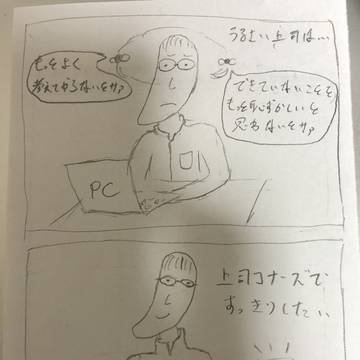 うるさい上司は…
できていないことを
もっと恥ずかしいと
思わないとサァ
もっとよく
考えてやらないとサァ
PC
上司コナーズで
すっきりしたい